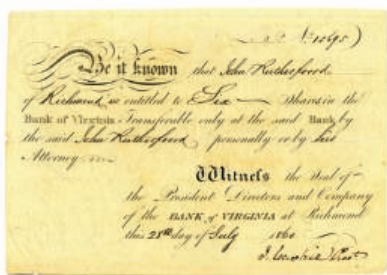 No 15695)
Be it known that John Rutherfoord
of Richmond is entitled to Six Shares in the
Bank of Virginia Transferable only at the said Bank by
the said John Rutherfoord personally or by his
Attorney
Witness the Seal of
the President Directors and Company
of the BANK of VIRGINIA at Richmond
this 28th day of July 1860
Prest